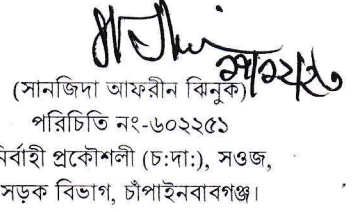 ১৭/১২/২৩
(সানজিদা আফরীন ঝিনুক)
পরিচিতি নং-৬০২২৫১
নির্বাহী প্রকৌশলী (চ:দা:), সওজ,
সড়ক বিভাগ, চাঁপাইনবাবগঞ্জ।